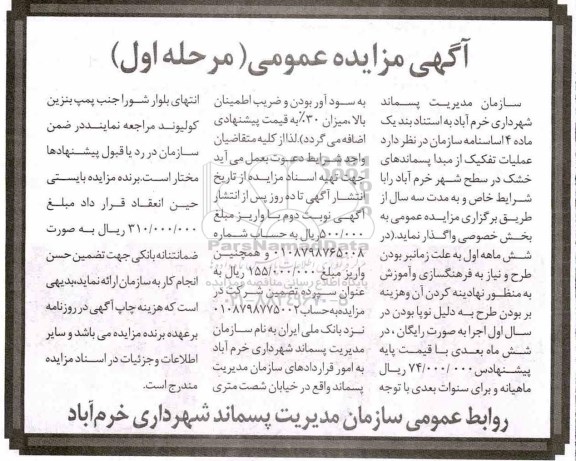 آگهی مزایده عمومی (مرحله اول)
سازمان مدیریت پسماند
شهرداری خرم آباد به استناد بند یک
ماده ۴ اساسنامه سازمان در نظر دارد
عملیات تفکیک از مبدا پسماندهای
خشک در سطح شهر خرم آباد رابا
شرایط خاص و به مدت سه سال از
طریق برگزاری مزایده عمومی به
بخش خصوصی واگذار نماید.(در
شش ماهه اول به علت زمانبر بودن
طرح و نیاز به فرهنگسازی و آموزش
به منظور نهادینه کردن آن وهزینه
بر بودن طرح به دلیل نوپا بودن در
سال اول اجرا به صورت رایگان ، در
شش ماه بعدی با قیمت پایه
پیشنهادس ۷۴/۰۰۰/۰۰۰ ریال
ماهیانه و برای سنوات بعدی با توجه
به سود آور بودن و ضریب اطمینان
بالا،میزان ۳۰٪به قیمت پیشنهادی
اضافه می گردد).لذا از کلیه متقاضیان
واجد شرایط دعوت بعمل می آید
جهت تهیه اسناد مزایده از تاریخ
انتشار آگهی تا ده روز پس از انتشار
آگهی نوبت دوم با واریز مبلغ
۵۰۰/۰۰۰ریال به حساب شماره
۰۱۰۸۷۹۸۷۶۵۰۰۸ و همچنین
واریز مبلغ ۱۵۵/۰۰۰/۰۰۰ ریال به
عنوان سپرده تضمین شرکت در
مزایده به حساب ۰۱۰۸۷۹۸۷۷۵۰۰۲
نزد بانک ملی ایران به نام سازمان
مدیریت پسماند شهرداری خرم آباد
به امور قراردادهای سازمان مدیریت
پسماند واقع در خیابان شصت متری
انتهای بلوار شورا جنب پمپ بنزین
کولیوند مراجعه نماینددر ضمن
سازمان در رد یا قبول پیشنهادها
مختار است.برنده مزایده بایستی
حین انعقاد قرار داد مبلغ
۳۱۰/۰۰۰/۰۰۰ ریال به صورت
ضمانتنانه بانکی جهت تضمین حسن
انجام کار به سازمان ارائه نماید،بدیهی
است که هزینه چاپ آگهی در روزنامه
بر عهده برنده مزایده می باشد و سایر
اطلاعات وجزئیات در اسناد مزایده
مندرج است.
روابط عمومی سازمان مدیریت پسماند شهرداری خرم‌آباد
ParsNamadData